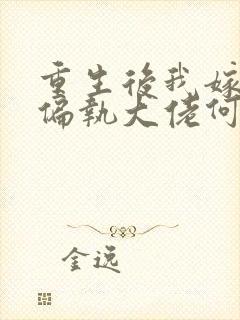 重生後我嫁
偏執大佬何
金逸